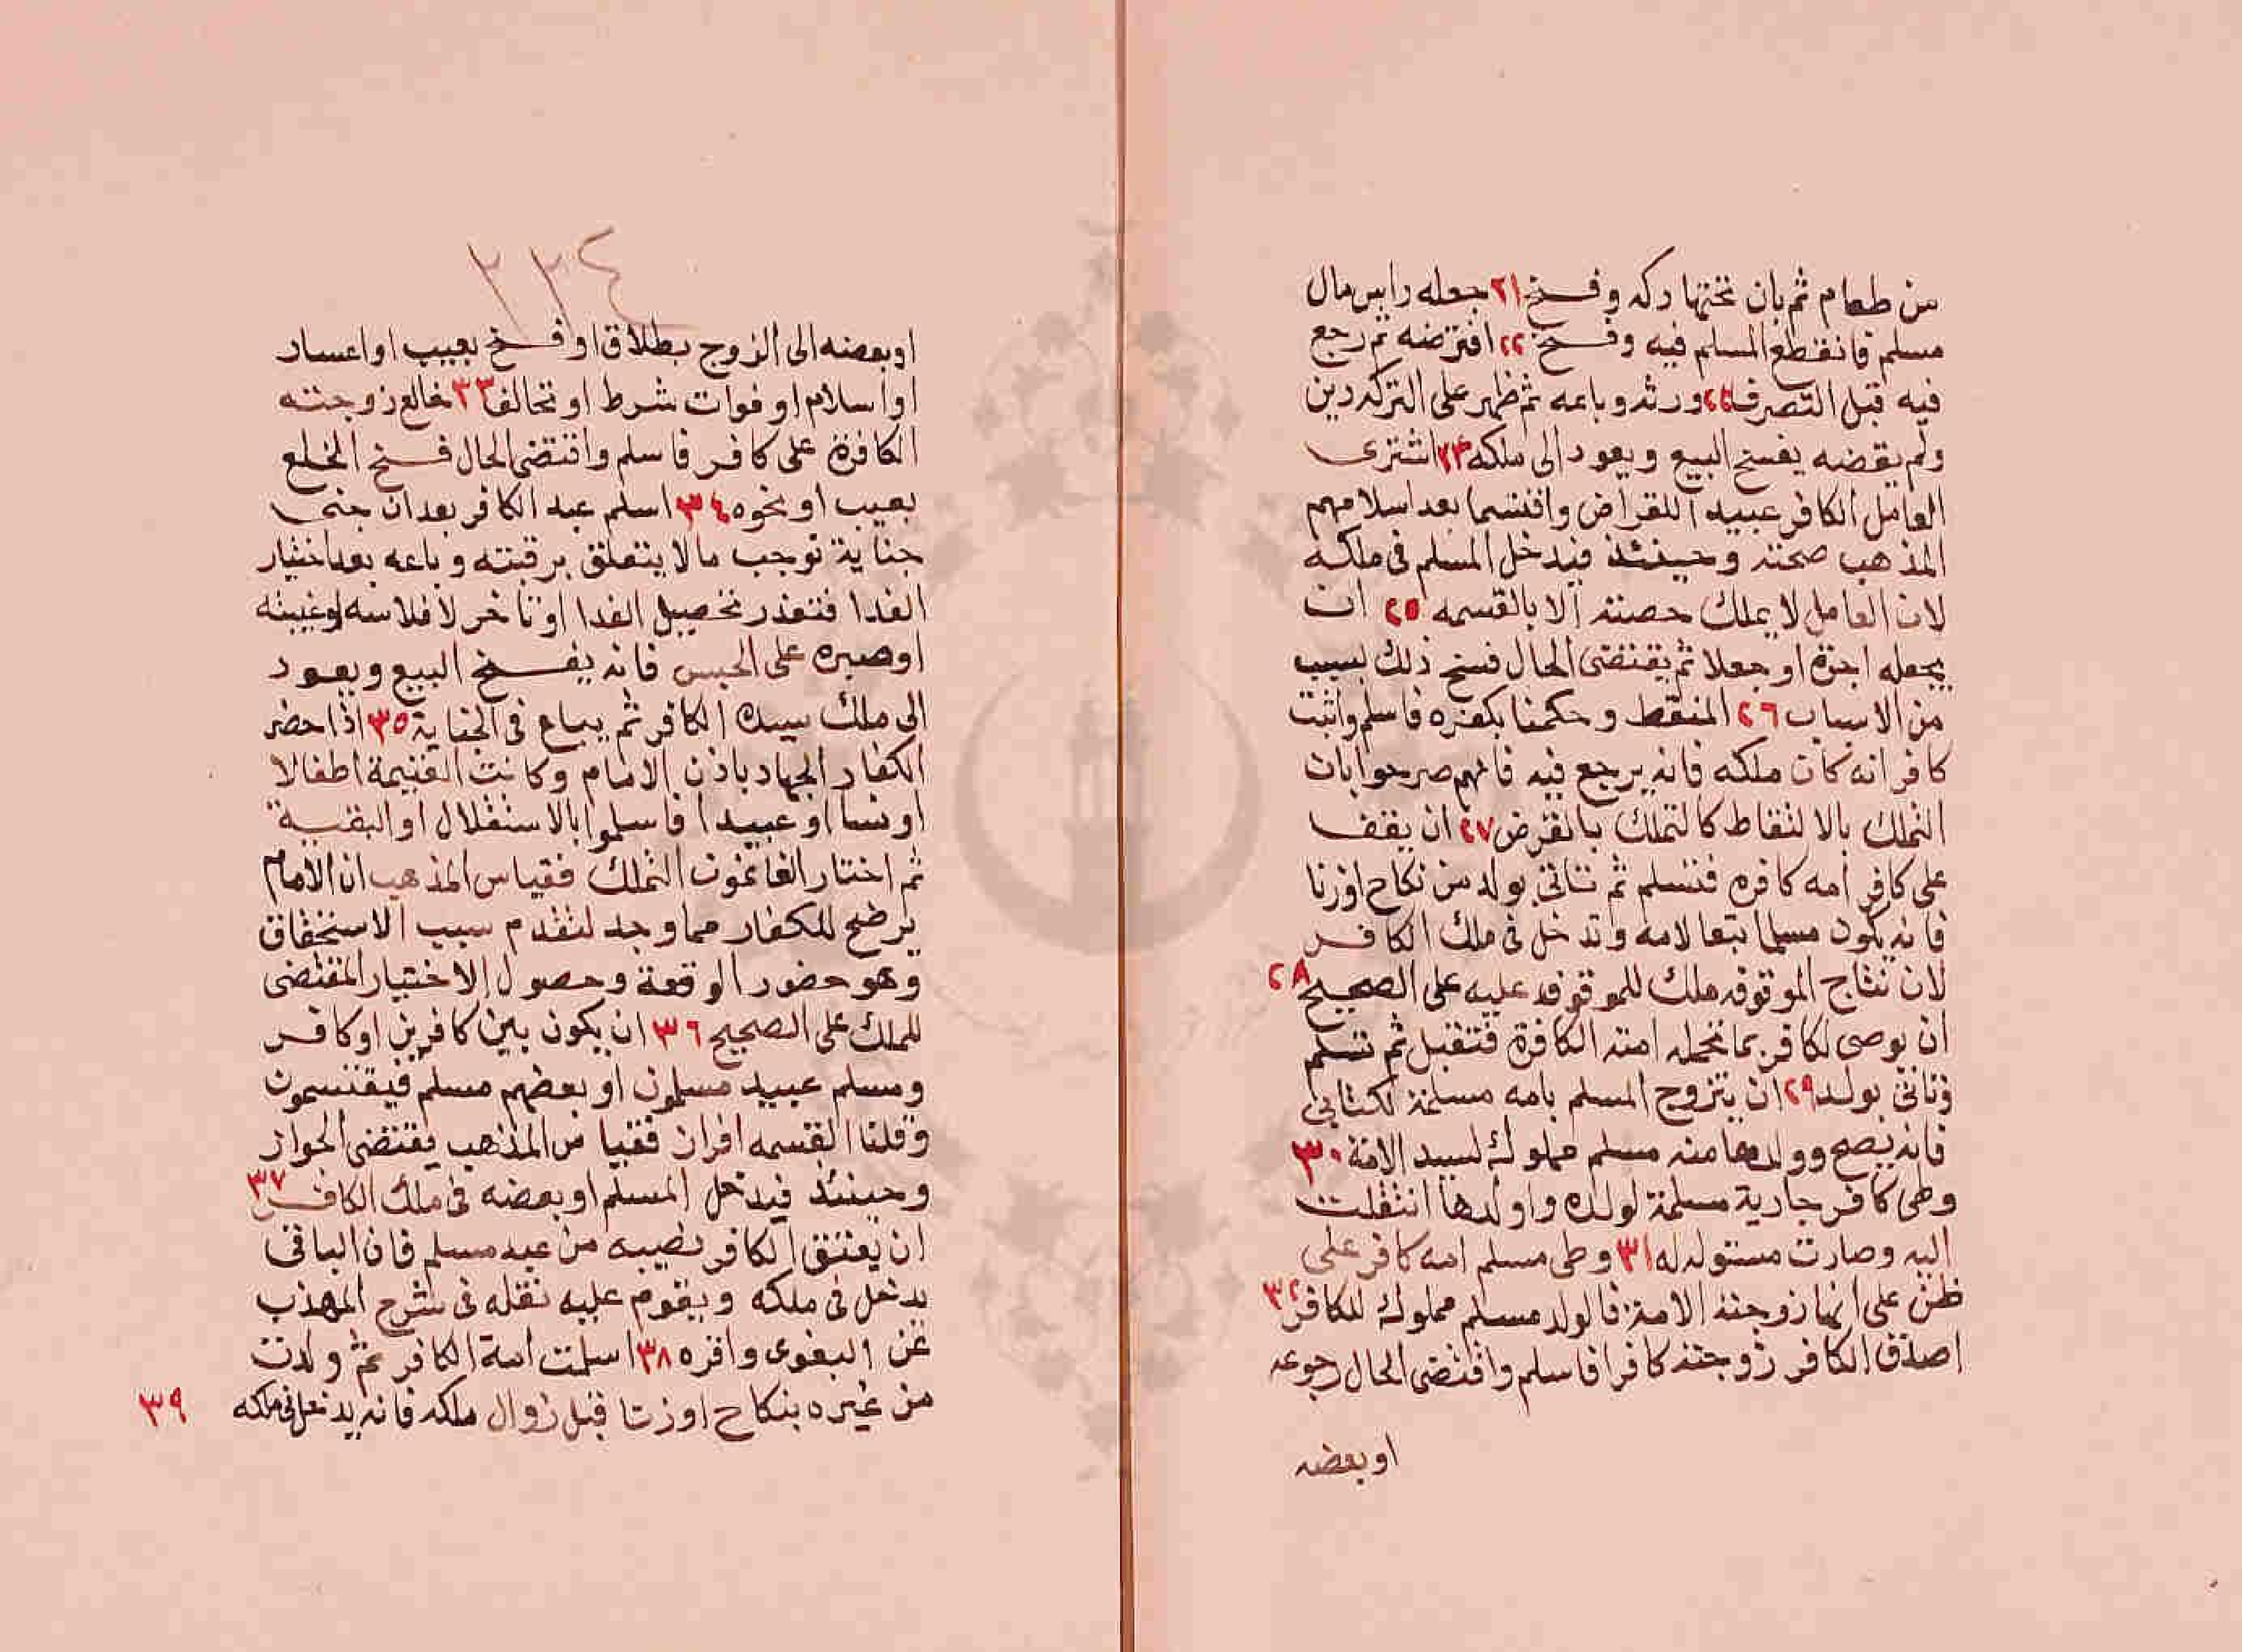 من طعام ثم بان تحتها دكه وفسخ ٢١ جعله راس مال
مسلم فانقطع المسلم فيه وفسخ ٢٢ اقترضه ثم رجع
فيه قبل التصرف ٢٣ ورثه وباعه ثم ظهر على التركه دين
ولم يقضه يفسخ البيع ويعود الى ملكه ٢٤ اشترى
العامل الكافر عبيدا للقراض واقتسما بعد اسلامهم
المذهب صحته وحينئذ فيدخل المسلم فى ملكه
لان العامل لا يملك حصته الا بالقسمه ٢٥ ان
يجعله اجرة او جعلا ثم يقتضى الحال فسخ ذلك بسبب
من الاسباب ٢٦ الملتقط وحكمنا بكفره فاسلم واثبت
كافر انه كان ملكه فانه يرجع فيه فانهم صرحوا بان
التملك بالالتقاط كالتملك بالقرض ٢٧ ان يقف
على كافر امه كافره فتسلم ثم تاتى بولد من نكاح اوزنا
فانه يكون مسلما تبعا لامه وتدخل فى ملك الكافر
لان نتاج الموقوفه ملك للموقوف عليه على الصحيح ٢٨
ان يوصى لكافر بما تحمله امته الكافرة فتقبل ثم تسلم
وتاتى بولد ٢٩ ان يتزوج المسلم بامه مسلمة لكتابى
فانه يصح وولدها منه مسلم مملوك لسيد الامة ٣٠
وطى كافر جارية مسلمة لولده واولدها انتقلت
اليه وصارت مستولده له ٣١ وطى مسلم امه كافر على
ظن على انها زوجته الامة فالولد مسلم مملوك للكافر ٣٢
اصدق الكافر زوجته كافرا فاسلم واقتضى الحال رجوعه
او بعضه
٢٣٤
او بعضه الى الزوج بطلاق او فسخ بعيب او اعسار
او اسلام او فوات شرط او تحالف ٣٣ خالع زوجته
الكافرة على كافر فاسلم واقتضى الحال فسخ الخلع
بعيب او نحوه ٣٤ اسلم عبد الكافر بعد ان جنى
جناية توجب مالا يتعلق برقبته وباعه بعد اختيار
الفدا فتعذر تحصيل الفدا او تاخر لافلاسه او غيبته
او صبره على الحبس فانه يفسخ البيع ويعود
الى ملك سيده الكافر ثم يباع فى الجناية ٣٥ اذا حضر
الكفار الجهاد باذن الامام وكانت الغنيمة اطفالا
او نسا او عبيدا فاسلموا بالاستقلال او التبعية
ثم اختار الغانمون التملك فقياس المذهب ان الامام
يرضخ للكفار مما وجد لتقدم سبب الاستحقاق
وهو حضور الوقعة وحصول الاختيار المقتضى
للملك على الصحيح ٣٦ ان يكون بين كافرين او كافر
ومسلم عبيد مسلمون او بعضهم مسلم فيقتسمون
وقلنا القسمه افراز فقياس المذهب يقتضى الجواز
وحينئذ فيدخل المسلم او بعضه فى ملك الكافر ٣٧
ان يعتق الكافر نصيبه من عبد مسلم فان الباقى
يدخل فى ملكه ويقوم عليه نقله فى شرح المهذب
عن البغوى واقره ٣٨ اسلمت امة الكافر ثم ولدت
من غيره بنكاح او زنا قبل زوال ملكه فانه يدخل فى ملكه ٣٩